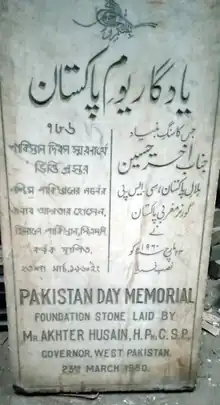 یادگار یوم پاکستان
۷۸۶
পাকিস্তান দিবস স্মরণার্থে
ভিত্তি প্রস্তর
পশ্চিম পাকিস্তানের গভর্নর
জনাব আখতার হোসেন,
হিলালে পাকিস্তান, সিএসপি
কর্তৃক স্থাপিত,
২৩শে মার্চ, ১৯৬০ইং
جس کا سنگ بنیاد
جناب اختر حسین
ہلال پاکستان، سی ایس پی
گورنر مغربی پاکستان
نے
۲۳ مارچ ۱۹۶۰ کو
نصب فرمایا
PAKISTAN DAY MEMORIAL
FOUNDATION STONE LAID BY
MR. AKHTER HUSAIN, H.PK, C.S.P.
GOVERNOR, WEST PAKISTAN.
23RD MARCH 1960.